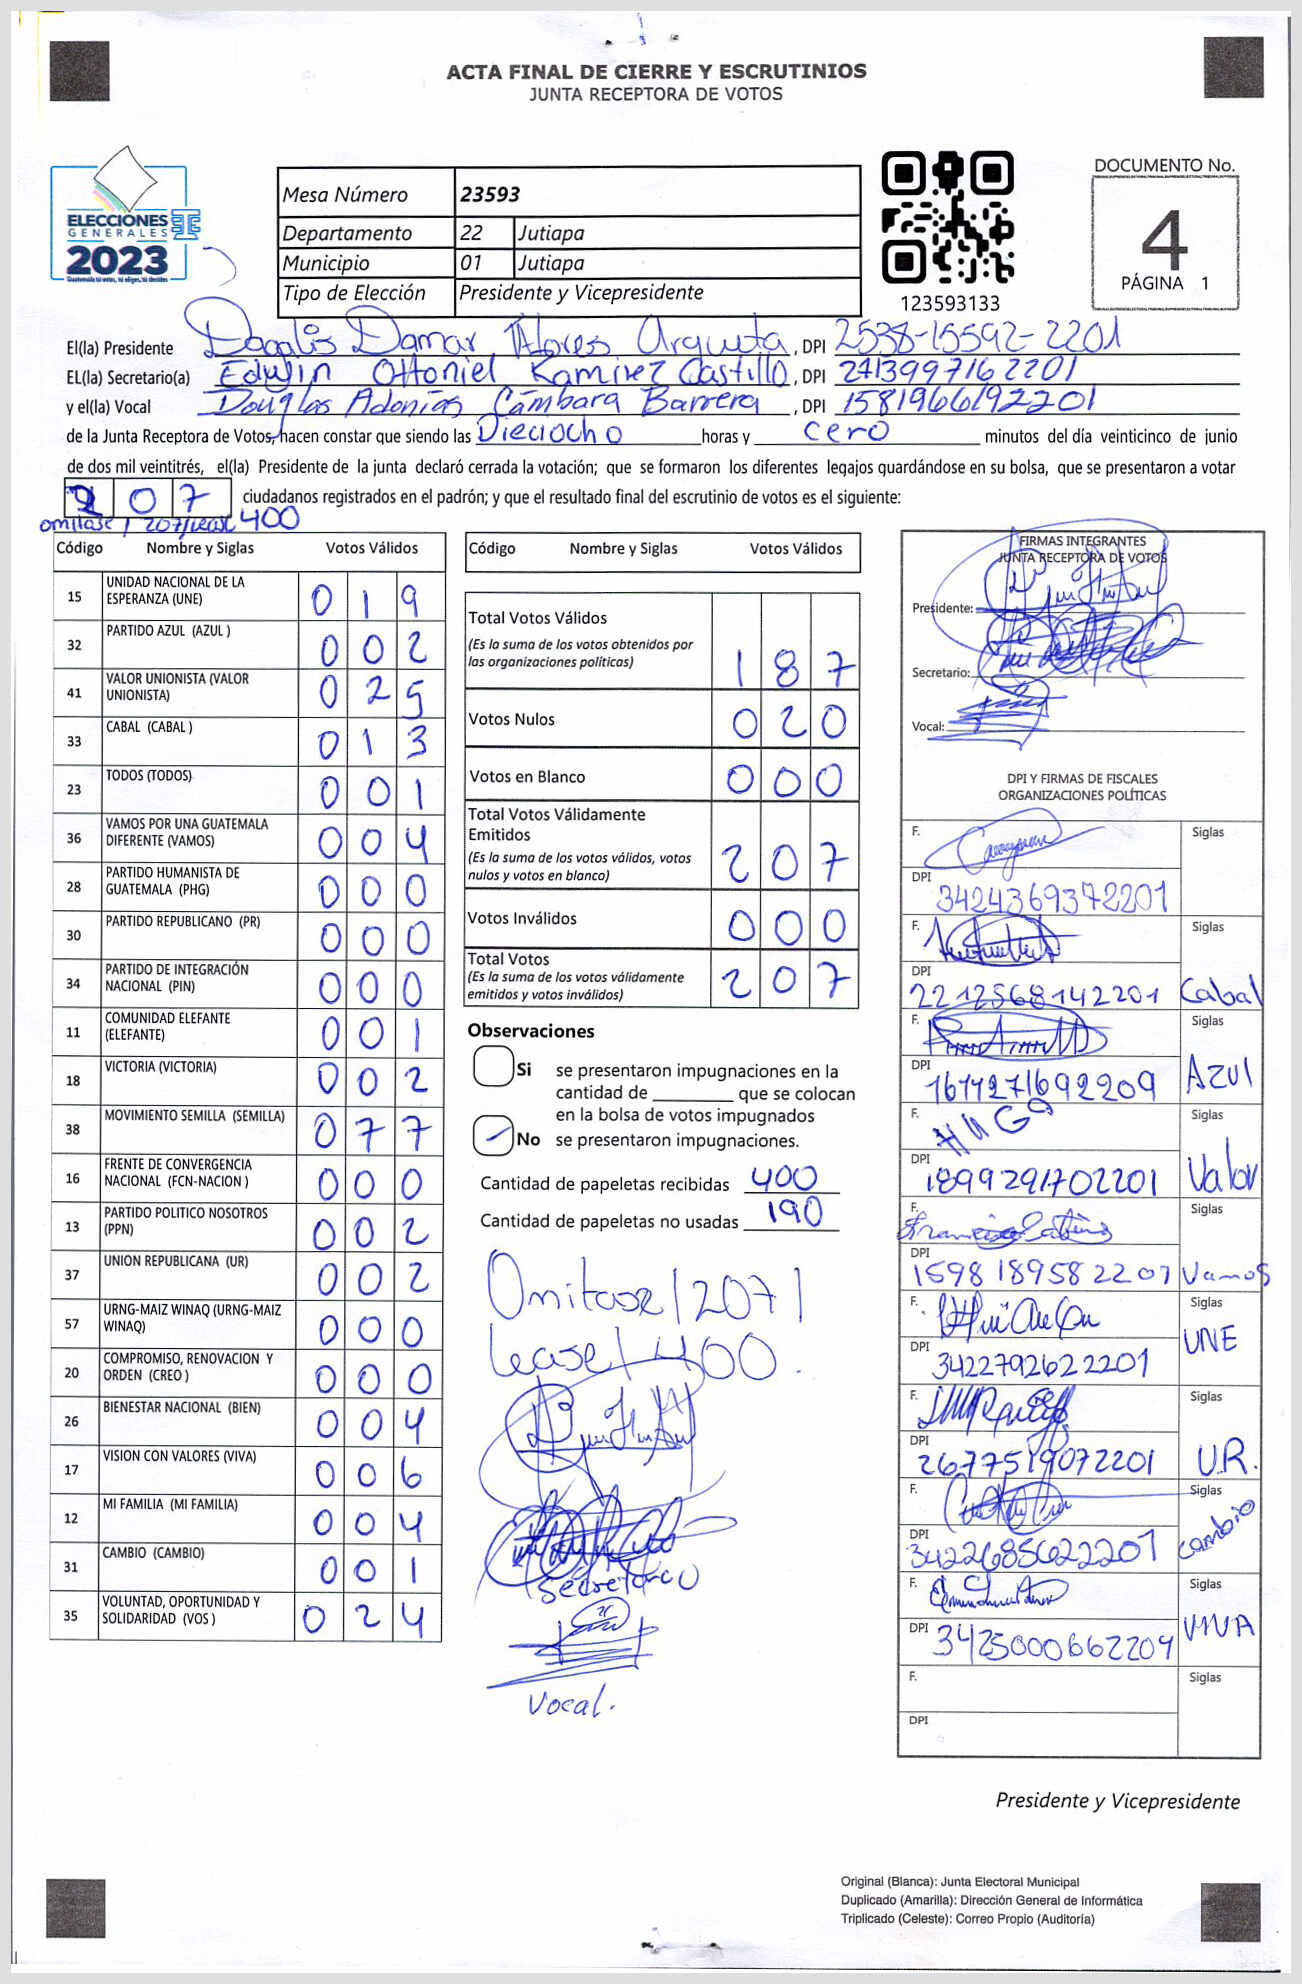 ACTA FINAL DE CIERRE Y ESCRUTINIOS
JUNTA RECEPTORA DE VOTOS
ELECCIONES
GENERALES
2023
Guatemala tú votas, tú eliges, tú decides
Mesa Número 23593
Departamento 22 Jutiapa
Municipio 01 Jutiapa
Tipo de Elección Presidente y Vicepresidente
123593133
DOCUMENTO No.
4
PÁGINA 1
El(la) Presidente Dagalis Damar Flores Argueta, DPI 2538-15592-2201
EL(la) Secretario(a) Edwin Ottoniel Ramirez Castillo, DPI 2413997162201
y el(la) Vocal Douglas Adonias Cámbara Barrera, DPI 1581966192201
de la Junta Receptora de Votos, hacen constar que siendo las Dieciocho horas y cero minutos del día veinticinco de junio
de dos mil veintitrés, el(la) Presidente de la junta declaró cerrada la votación; que se formaron los diferentes legajos guardándose en su bolsa, que se presentaron a votar
207 ciudadanos registrados en el padrón; y que el resultado final del escrutinio de votos es el siguiente:
omitase / 207/lease 400
Código Nombre y Siglas Votos Válidos
15 UNIDAD NACIONAL DE LA ESPERANZA (UNE) 019
32 PARTIDO AZUL (AZUL ) 002
41 VALOR UNIONISTA (VALOR UNIONISTA) 025
33 CABAL (CABAL ) 013
23 TODOS (TODOS) 001
36 VAMOS POR UNA GUATEMALA DIFERENTE (VAMOS) 004
28 PARTIDO HUMANISTA DE GUATEMALA (PHG) 000
30 PARTIDO REPUBLICANO (PR) 000
34 PARTIDO DE INTEGRACIÓN NACIONAL (PIN) 000
11 COMUNIDAD ELEFANTE (ELEFANTE) 001
18 VICTORIA (VICTORIA) 002
38 MOVIMIENTO SEMILLA (SEMILLA) 077
16 FRENTE DE CONVERGENCIA NACIONAL (FCN-NACION ) 000
13 PARTIDO POLITICO NOSOTROS (PPN) 002
37 UNION REPUBLICANA (UR) 002
57 URNG-MAIZ WINAQ (URNG-MAIZ WINAQ) 000
20 COMPROMISO, RENOVACION Y ORDEN (CREO ) 000
26 BIENESTAR NACIONAL (BIEN) 004
17 VISION CON VALORES (VIVA) 006
12 MI FAMILIA (MI FAMILIA) 004
31 CAMBIO (CAMBIO) 001
35 VOLUNTAD, OPORTUNIDAD Y SOLIDARIDAD (VOS ) 024
Código Nombre y Siglas Votos Válidos
Total Votos Válidos 187
(Es la suma de los votos obtenidos por
las organizaciones políticas)
Votos Nulos 020
Votos en Blanco 000
Total Votos Válidamente
Emitidos 207
(Es la suma de los votos válidos, votos
nulos y votos en blanco)
Votos Inválidos 000
Total Votos 207
(Es la suma de los votos válidamente
emitidos y votos inválidos)
Observaciones
Si se presentaron impugnaciones en la
cantidad de ________ que se colocan
en la bolsa de votos impugnados
No se presentaron impugnaciones.
Cantidad de papeletas recibidas 400
Cantidad de papeletas no usadas 190
Omitase/207/
Lease/400.
Secretario
Vocal.
FIRMAS INTEGRANTES
JUNTA RECEPTORA DE VOTOS
Presidente:
Secretario:
Vocal:
DPI Y FIRMAS DE FISCALES
ORGANIZACIONES POLÍTICAS
F. Siglas
DPI 3424369372201
F. Siglas
DPI 2212568142201 Cabal
F. Siglas
DPI 1671271692209 AZUl
F. HUGO Siglas
DPI 1899291702201 Valor
F. Siglas
DPI 1598189582201 Vamos
F. Siglas
DPI 3422792622201 UNE
F. Siglas
DPI 2677519072201 U.R.
F. Siglas
DPI 3422685622201 cambio
F. Siglas
DPI 3425000662209 VIVA
F. Siglas
DPI
Presidente y Vicepresidente
Original (Blanca): Junta Electoral Municipal
Duplicado (Amarilla): Dirección General de Informática
Triplicado (Celeste): Correo Propio (Auditoría)